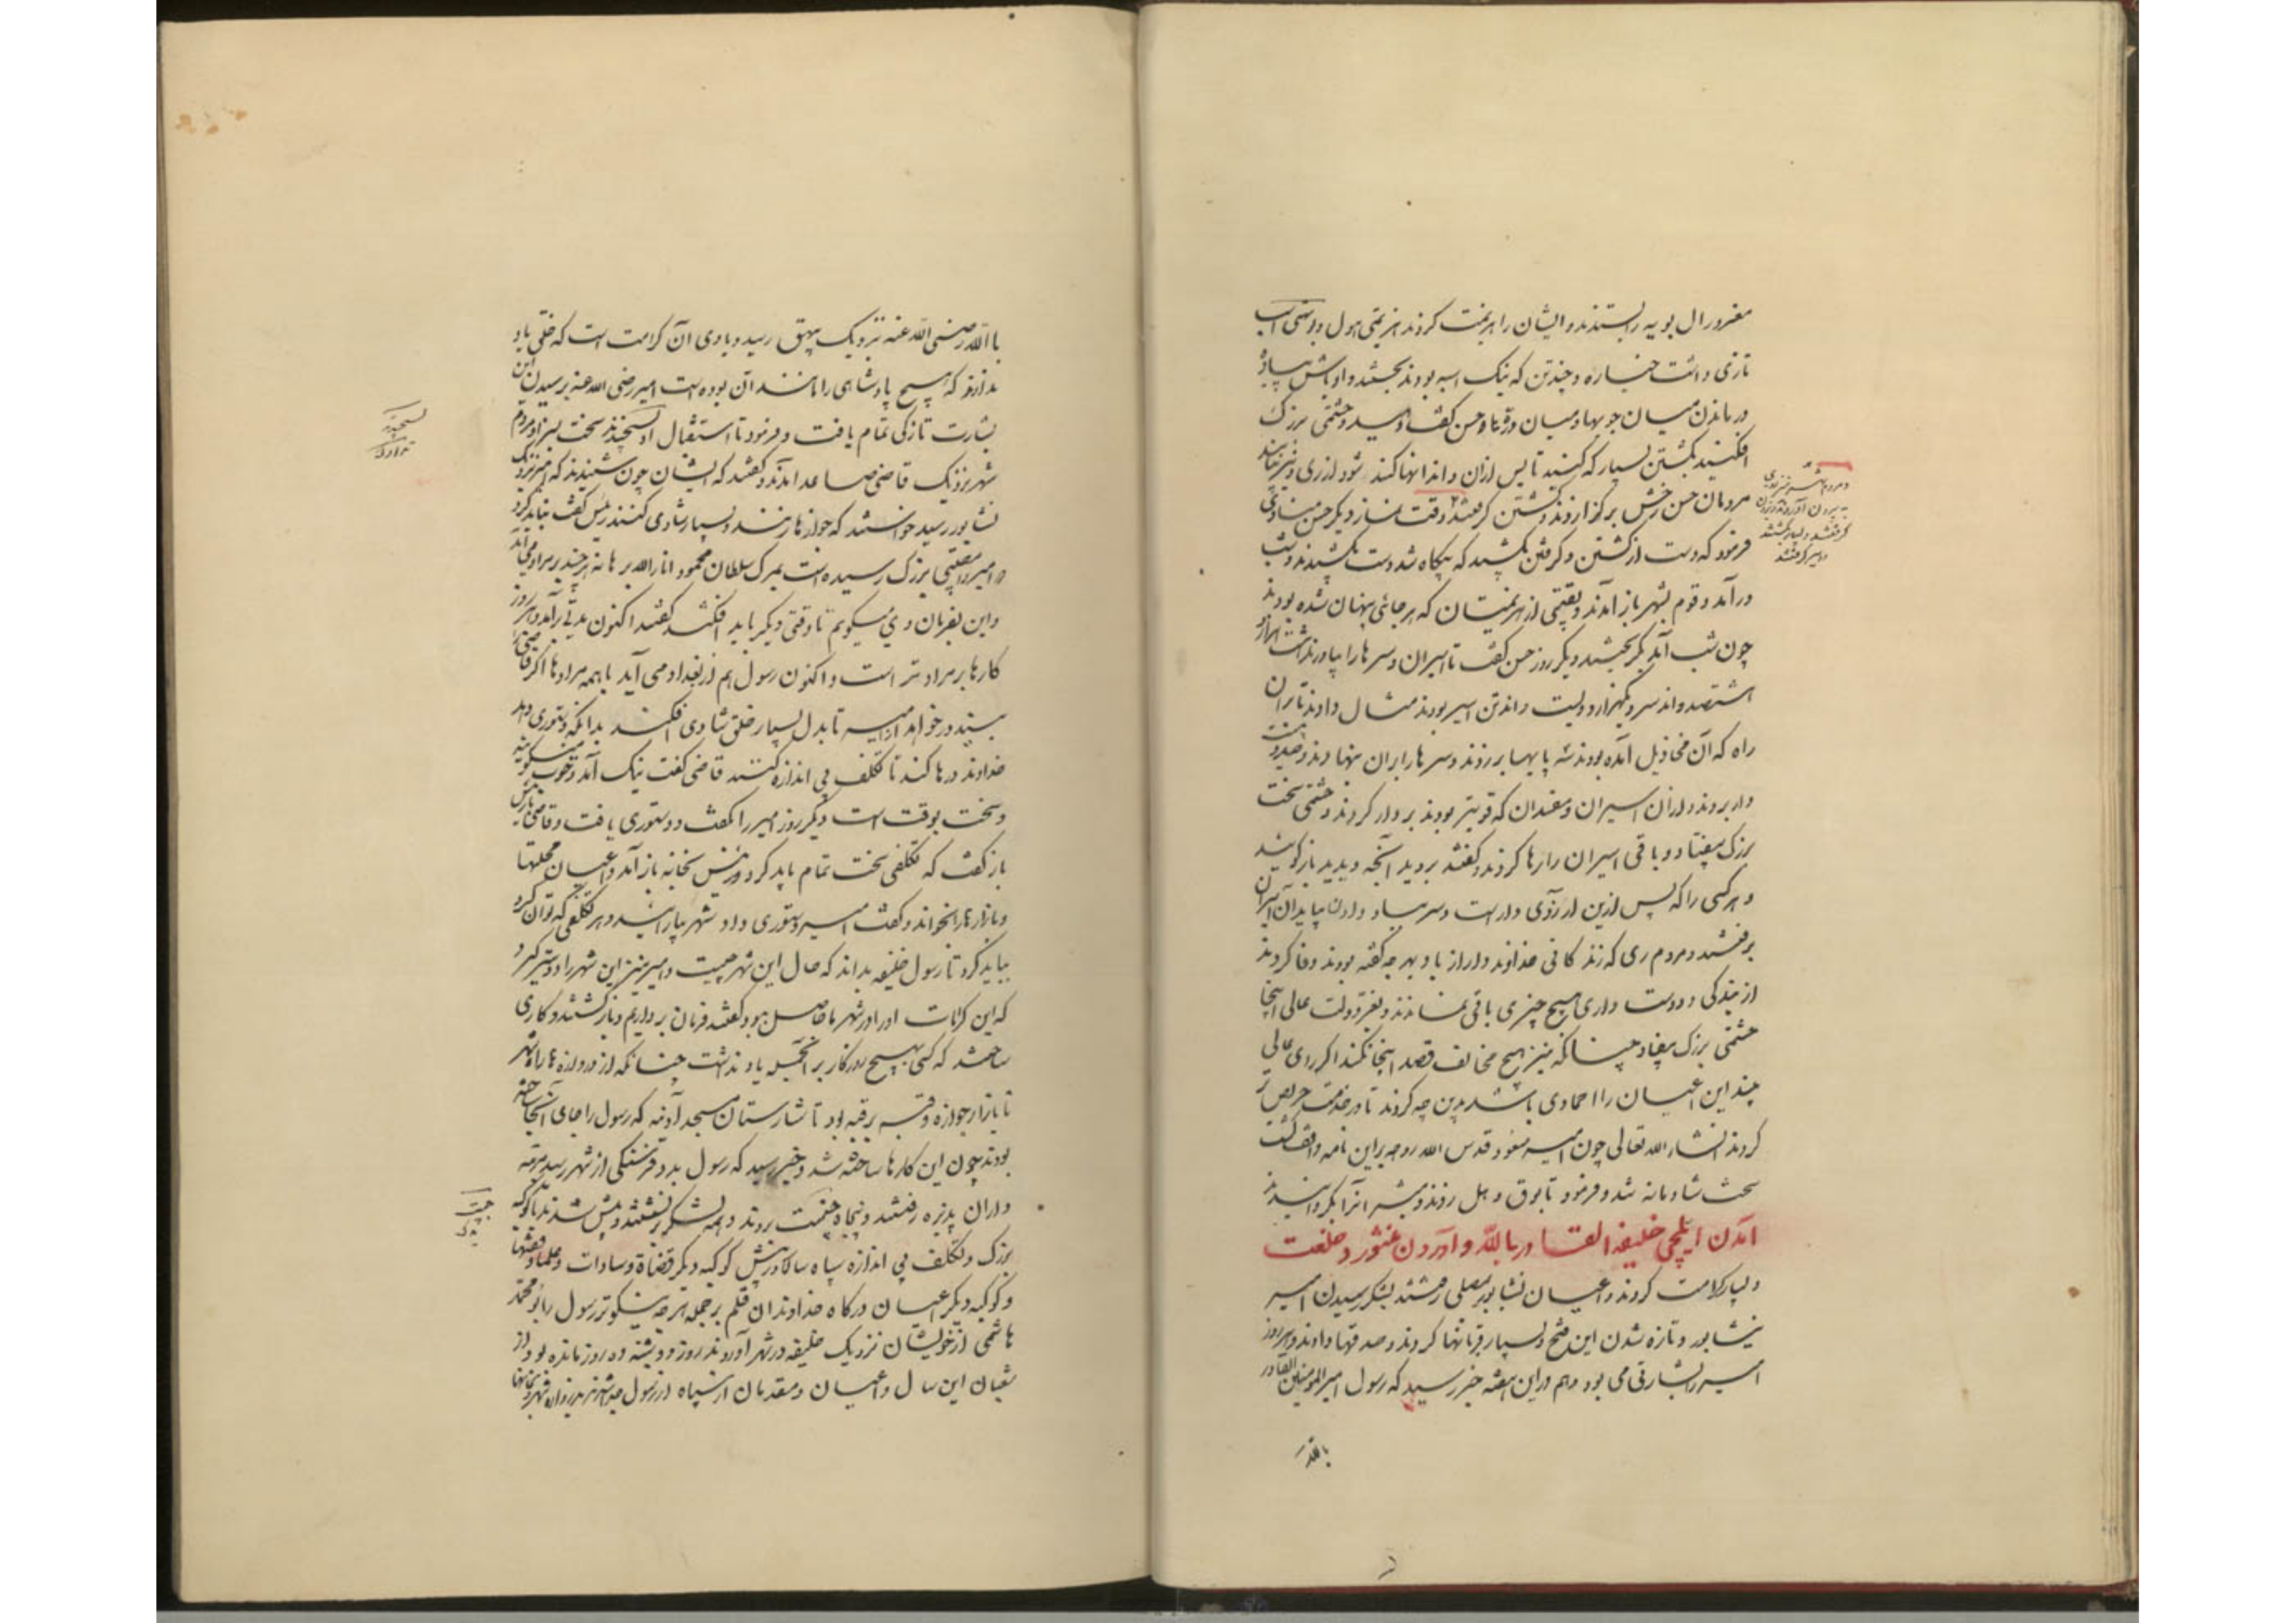 مغرور آل بویه را بستندند و ایشان را هزیمت کردند هزیمتی هول و بوسی اسب
تازی داشت خیاره و چندتن که نیک اسبه بودند بجستند و اوباش پیاده
درماندن میان جویها و میان درها و حسن گفت دهید و حشمتی بزرگ
افکنید بکشتن بسیار که کنید تا پس ازان دندانها کند شود از ری و نیز نیایند
مردمان حسن خش برگزاردند و کشتن گرفتند و وقت نماز دیگر حسن منادی
فرمود که دست از کشتن و گرفتن بکشید که بیگاه شد دست بکشیدند و شب
درآمد و قوم بشهر باز آمدند و بقیتی از هزیمتیان که هر جائی پنهان شده بودند
چون شب آمد بگریختند و دیگر روز حسن گفت تا اسیران و سرها را بیاورند هشت هزار و
هشتصد و اند سر و یکهزار و دویست و اند تن اسیر بودند مثال داد تا بران
راه که آن مخاذیل آمده بودند سه پایها برزدند و سرها را بران بنهادند و صد و بیست
دار بزدند و ازان اسیران و مفسدان که قویتر بودند بر دار کردند و حشمتی سخت
بزرگ بیفتاد و باقی اسیران را رها کردند و گفتند بروید و آنچه دیدید بازگوئید
و هر کسی را که پس ازین آرزوی دار است و سر بباد دادن بیاید آن اسیران
برفتند و مردم ری که زندگانی خداوند دراز باد بهر چه گفته بودند وفا کردند
از بندگی و دوست داری هیچ چیزی باقی نماندند و بفر دولت عالی اینجا
حشمتی بزرگ بیفتاد چنانکه نیز هیچ مخالف قصد اینجا نکند اگر رای عالی
بیند این اعیان را احمادی باشد بدین چه کردند تا در خدمت حریص تر
گردند انشاء الله تعالی چون امیر مسعود قدس الله روحه براین نامه واقف گشت
سخت شادمانه شد و فرمود تا بوق و دهل زدند و مبشران را بگردانیدند
آمدن ایلچی خلیفه القادر بالله و آوردن منشور و خلعت
و بسیار کرامت کردند و اعیان نشابور بمصلی رفتند بشکر رسیدن امیر
نیشابور و تازه شدن این فتح و بسیار قربانها کردند و صدقها دادند و هر روز
امیر را بشارتی می بود و هم دراین هفته خبر رسید که رسول امیرالمومنین القادر
بالله
و مردم شهر نیز روی
به بیرون آوردند و بزدن
گرفتند و بسیار بکشتند
و اسیر گرفتند
باالله رضی الله عنه نزدیک بیهق رسید و با وی آن کرامت است که خلق یاد
ندارند که هیچ پادشاهی را مانند آن بوده است امیر رضی الله عنه برسیدن این
بشارت تازگی تمام یافت و فرمود تا استقبال او بسیجیدند سخت بسزا و مردم
شهر نزدیک قاضی صاعد آمدند و گفتند که ایشان چون شنیدند که امیر نزدیک
نشابور رسید خواستند که خوازها زنند و بسیار شادی کنند رئیس گفت نباید کرد
و امیر را مصیبتی بزرگ رسیده است بمرگ سلطان محمود انار الله برهانه هر چند بر مراد می آید
و این بفرمان وی میگویم تا وقتی دیگر باید افکند گفتند اکنون مدتی برآمد و هر روز
کارها بر مراد تر است و اکنون رسول هم از بغداد می آید با همه مرادها اگر قاضی
بیند درخواهد از امیر تا بدل بسیار خلق شادی افکند بدانکه دستوری دهد
خداوند و رها کند تا تکلف بی اندازه کنند قاضی گفت نیک آمد و خوب میگویید
و سخت بوقت است دیگر روز امیر را گفت و دستوری یافت و قاضی با رئیس
باز گفت که تکلفی سخت تمام باید کرد و رئیس بخانه باز آمد و اعیان محلتها
و بازارها را بخواند و گفت امیر دستوری داد شهر بیارایند و هر تکلفی که توان کرد
بباید کرد تا رسول خلیفه بداند که حال این شهر چیست و امیر نیز این شهر را دوستر گیرد
که این کرامات او را در شهر ما حاصل بود گفتند فرمان برداریم و بازگشتند و کاری
ساختند که کسی بهیچ روزگار بر آنجمله یاد نداشت چنانکه از دروازه ها راه شهر
تا بازار خوازه و قبه بر قبه بود تا شارستان مسجد آدینه که رسول را جای آنجا ساخته
بودند چون این کارها ساخته شد و خبر رسید که رسول بدو فرسنگی از شهر رسید مرتبه
داران پذیره رفتند و پنجاه جنیبت بردند و همه لشکر برنشستند و پیش شدند با کوکبه
بزرگ و تکلف بی اندازه سپاه سالار در پیش کوکبه دیگر قضاة و سادات و علما و فقها
و کوکبه دیگر اعیان درگاه خداوندان قلم بر جمله هر چه نیکوتر رسول را بو محمد
هاشمی از خویشان نزدیک خلیفه در شهر آوردند روز دوشنبه ده روز مانده بود از
شعبان این سال و اعیان و مقدمان از سپاه از رسول جدا شدند بدروازه شهر و بخانها